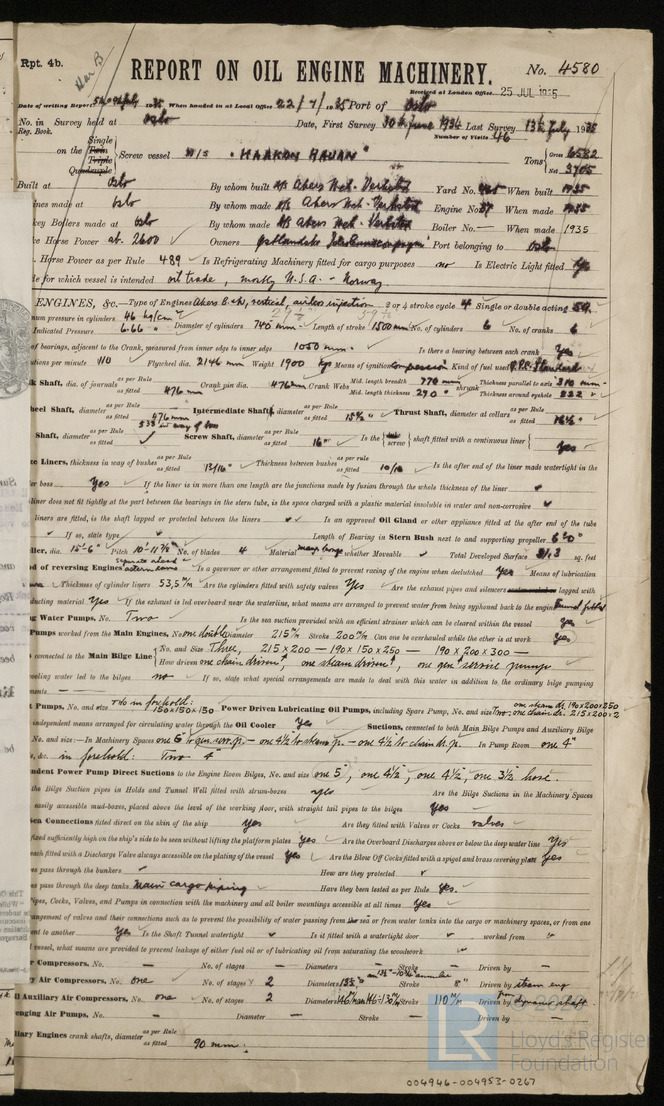 Rpt. 4b.
REPORT ON OIL ENGINE MACHINERY.
No. 4580
Received at London Office 25 JUL 1935
Date of writing Report 19 35 When handed in at Local Office 22/7/1935 Port of Oslo
No. in Survey held at Oslo Date, First Survey 30th June 1934 Last Survey 13th July 1935
Reg. Book. Number of Visits 46
Single
on the Twin Screw vessel M/S "HAAKON HAUAN" Tons Gross 6582
Triple
Quadruple Net 3905
Built at Oslo By whom built A/S Akers Mek. Verksted Yard No. When built 1935
ines made at Oslo By whom made A/S Akers Mek. Verksted Engine No. When made 1935
key Boilers made at Oslo By whom made A/S Akers Mek. Verksted Boiler No. — When made 1935
ke Horse Power at 2600 Owners Port belonging to Oslo
. Horse Power as per Rule 489 Is Refrigerating Machinery fitted for cargo purposes no Is Electric Light fitted Yes
de for which vessel is intended oil trade, mostly U.S.A. - Norway.
ENGINES, &c.—Type of Engines Akers B & W, vertical, airless injection 2 or 4 stroke cycle 4 Single or double acting SA.
mum pressure in cylinders 46 kg/cm² Diameter of cylinders 740 mm Length of stroke 1500 mm No. of cylinders 6 No. of cranks 6
Indicated Pressure 6.66
of bearings, adjacent to the Crank, measured from inner edge to inner edge 1050 mm. Is there a bearing between each crank Yes
utions per minute 110 Flywheel dia. 2146 mm Weight 1900 kgs Means of ignition compression Kind of fuel used
k Shaft, dia. of journals as per Rule as fitted 476 mm Crank pin dia. 476 mm Crank Webs Mid. length breadth 770 mm shrunk Thickness parallel to axis 310 mm
Mid. length thickness 290 " Thickness around eyehole 222 "
heel Shaft, diameter as per Rule as fitted 476 mm Intermediate Shafts, diameter as per Rule as fitted Thrust Shaft, diameter at collars as per Rule as fitted
Shaft, diameter as per Rule as fitted Screw Shaft, diameter as per Rule as fitted 16" Is the screw shaft fitted with a continuous liner Yes
ze Liners, thickness in way of bushes as per Rule as fitted 13/16" Thickness between bushes as per rule as fitted 10/16 Is the after end of the liner made watertight in the
er boss Yes If the liner is in more than one length are the junctions made by fusion through the whole thickness of the liner
liner does not fit tightly at the part between the bearings in the stern tube, is the space charged with a plastic material insoluble in water and non-corrosive
liners are fitted, is the shaft lapped or protected between the liners Is an approved Oil Gland or other appliance fitted at the after end of the tube
If so, state type Length of Bearing in Stern Bush next to and supporting propeller 6'0"
ller, dia. 15'-6" Pitch 10'-11 7/8" No. of blades 4 Material mang. bronze whether Moveable Total Developed Surface sq. feet
od of reversing Engines Is a governor or other arrangement fitted to prevent racing of the engine when declutched Yes Means of lubrication
Thickness of cylinder liners 53,5 m/m Are the cylinders fitted with safety valves Yes Are the exhaust pipes and silencers lagged with
ducting material Yes If the exhaust is led overboard near the waterline, what means are arranged to prevent water from being syphoned back to the engine Funnel fitted
g Water Pumps, No. Two Is the sea suction provided with an efficient strainer which can be cleared within the vessel yes
Pumps worked from the Main Engines, No. one double Diameter 215 m/m Stroke 200 m/m Can one be overhauled while the other is at work Yes
connected to the Main Bilge Line No. and Size Three, 215 x 200 — 190 x 150 x 250 — 190 x 200 x 300 —
How driven one chain driven, one steam driven, one gen. service pump
ooling water led to the bilges no If so, state what special arrangements are made to deal with this water in addition to the ordinary bilge pumping
ements — —
t Pumps, No. and size Two in forehold: 150 x 150 x 150 Power Driven Lubricating Oil Pumps, including Spare Pump, No. and size Two: one steam dr. 190x200x250 one chain dr. 215x200x2
independent means arranged for circulating water through the Oil Cooler Yes Suctions, connected to both Main Bilge Pumps and Auxiliary Bilge
No. and size:—In Machinery Spaces one 6" to gen. serv. p. — one 4½" to steam p. — one 4½" to chain dr. p. In Pump Room one 4"
s, &c. in forehold: Two 4"
ndent Power Pump Direct Suctions to the Engine Room Bilges, No. and size one 5", one 4½", one 4½", one 3½" hose.
the Bilge Suction pipes in Holds and Tunnel Well fitted with strum-boxes yes Are the Bilge Suctions in the Machinery Spaces
easily accessible mud-boxes, placed above the level of the working floor, with straight tail pipes to the bilges Yes
Sea Connections fitted direct on the skin of the ship yes Are they fitted with Valves or Cocks valves
fixed sufficiently high on the ship's side to be seen without lifting the platform plates Yes Are the Overboard Discharges above or below the deep water line Yes
each fitted with a Discharge Valve always accessible on the plating of the vessel Yes Are the Blow Off Cocks fitted with a spigot and brass covering plate Yes
es pass through the bunkers — How are they protected
es pass through the deep tanks Main cargo piping Have they been tested as per Rule Yes.
Pipes, Cocks, Valves, and Pumps in connection with the machinery and all boiler mountings accessible at all times Yes
rangement of valves and their connections such as to prevent the possibility of water passing from the sea or from water tanks into the cargo or machinery spaces, or from one
ent to another Yes Is the Shaft Tunnel watertight Is it fitted with a watertight door worked from
l vessel, what means are provided to prevent leakage of either fuel oil or of lubricating oil from saturating the woodwork
r Compressors, No. — No. of stages — Diameters — Stroke — Driven by —
y Air Compressors, No. one No. of stages 2 Diameters Stroke 8" Driven by steam eng
l Auxiliary Air Compressors, No. one No. of stages 2 Diameters Stroke 110 m/m Driven by from dynamo shaft.
enging Air Pumps, No. — Diameter — Stroke — Driven by —
liary Engines crank shafts, diameter as per Rule as fitted 90 mm.
LR
© 2020
Lloyd's Register
Foundation
004946-004953-0267